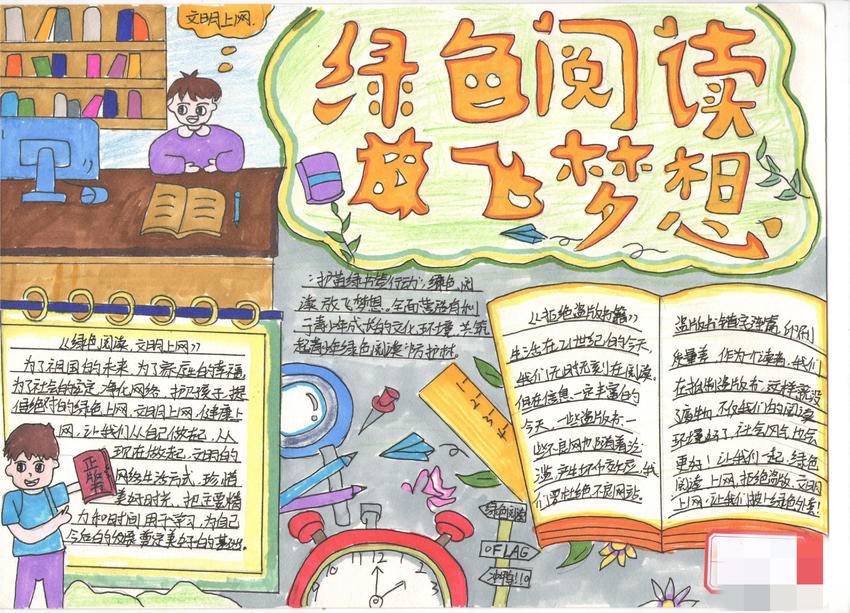 文明上网.
绿色阅读
放飞梦想
护苗绿书签行动:绿色阅
读,放飞梦想。全面营造有利
于青少年成长的文化环境,共筑
起青少年绿色阅读"防护林。
《绿色阅读,文明上网》
为了祖国的未来,为了家庭的幸福,
为了社会的稳定,净化网络,护乃孩子,提
倡绝对的绿色上网,文明上网,健康上
网,让我们从自己做起,从
现在做起,文明的
网络生活方式,珍惜
美好时光,把主要精
力和时间用于学习,为自己
今后的发展奠定美好的基础。
正版书
《拒绝盗版书籍》
生活在21世纪的今天,
我们无时无刻在阅读。
但在信息一定丰富的
今天,一些盗版书、一
些不良网也随着泛
滥,产生坏个效应,我
们要杜绝不良网站.
盗版书错字连篇,印刷
质量差,作为个读者,我们
在抵制盗版书,这样就没
了盗物,不仅我们的阅读
环境好了,社会风气也会
更好!让我们一起,绿色
阅读上网,拒绝盗版,文明
上网,让我们披上绿色外套!
绿色阅读
FLAG
冲鸭!!!
12